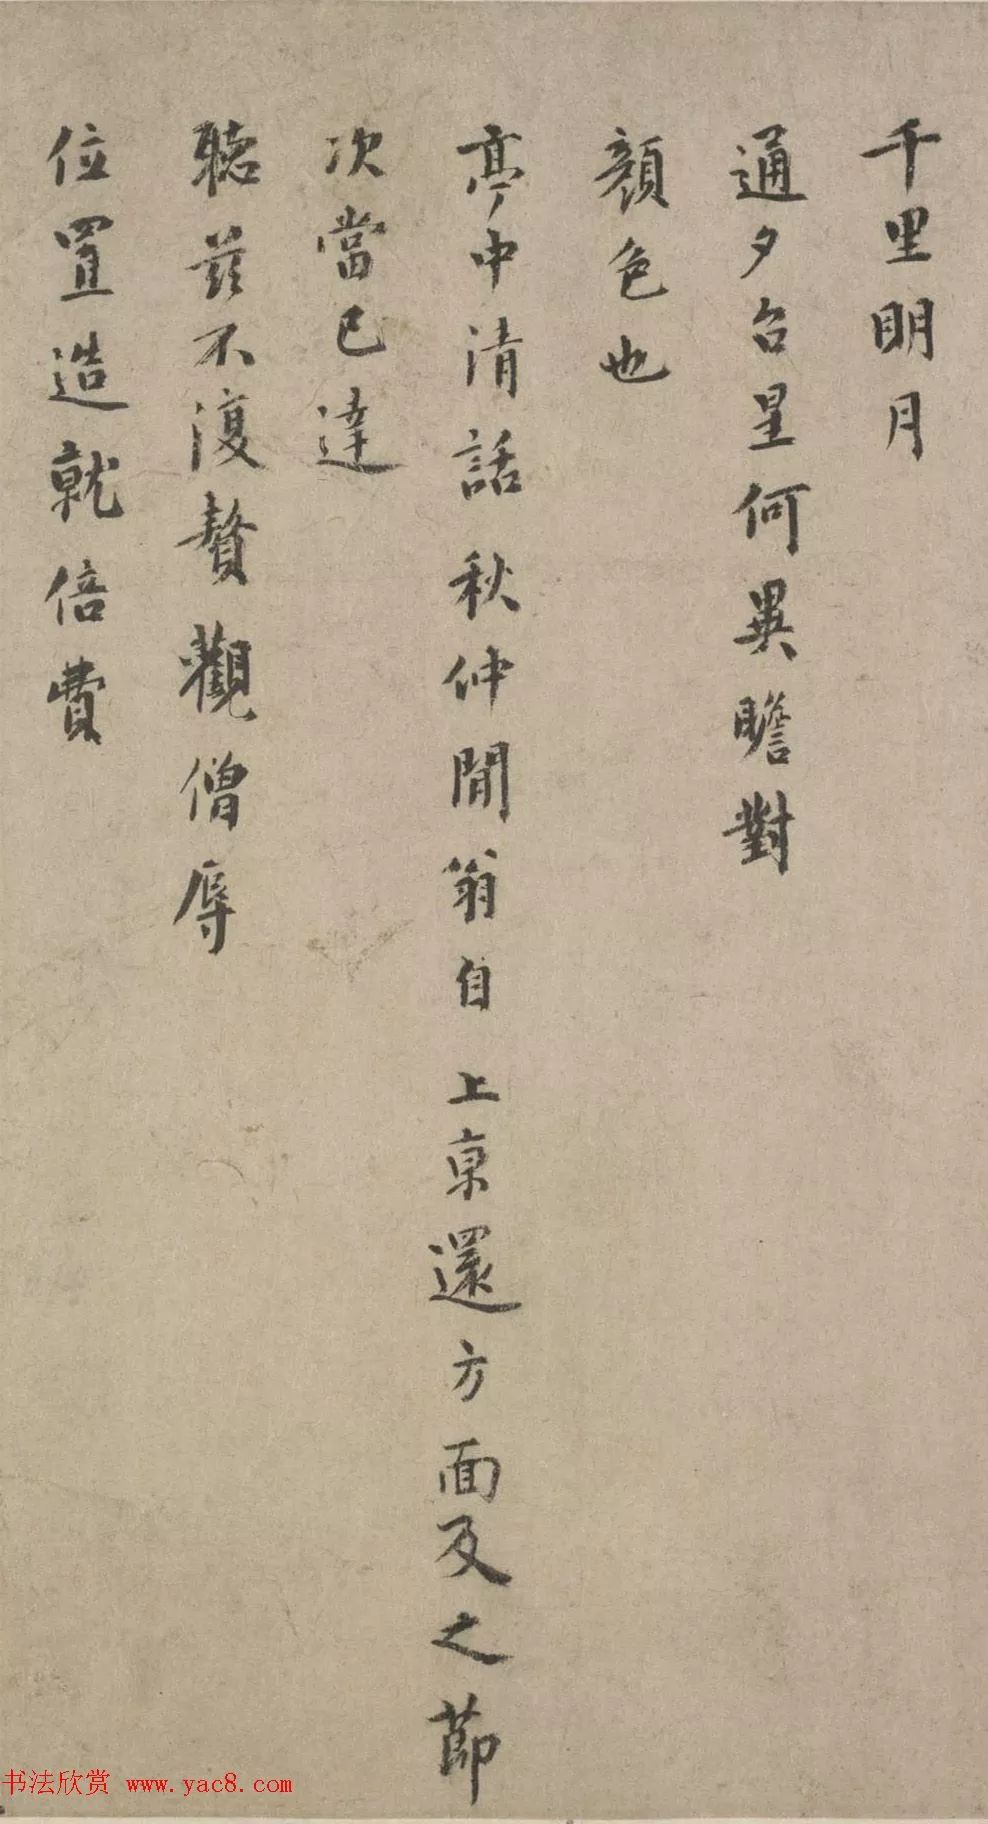 千里明月
通夕台星何異瞻對
顏色也
亭中清話秋仲閒翁自上京還方面及之節
次當已達
聽茲不復贅觀僧辱
位置造就倍費
书法欣赏 www.yac8.com